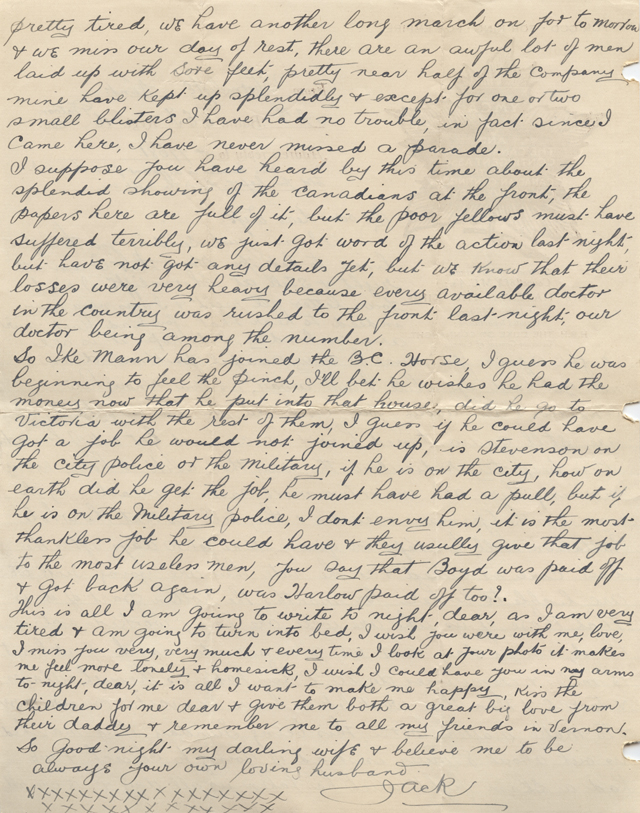 pretty tired, we have another long march on for to morrow
& we miss our day of rest, there are an awful lot of men
laid up with sore feet, pretty near half of the company
mine have kept up splendidly & except for one or two
small blisters I have had no trouble, in fact since I
came here, I have never missed a parade.
I suppose you have heard by this time about the
splendid showing of the Canadians at the front, the
papers here are full of it, but the poor fellows must have
suffered terribly, we just got word of the action last night,
but have not got any details yet, but we know that their
losses were very heavy because every available doctor
in the country was rushed to the front last night, our
doctor being among the number.
So Ike Mann has joined the B.C. Horse, I guess he was
beginning to feel the pinch, I'll bet he wishes he had the
money now that he put into that house, did he go to
Victoria with the rest of them, I guess if he could have
got a job he would not joined up, is Stevenson on
the city police or the Military, if he is on the city, how on
earth did he get the job, he must have had a pull, but if
he is on the Military police, I dont envy him, it is the most
thankless job he could have & they usully give that job
to the most useless men, you say that Boyd was paid off
& got back again, was Harlow paid off too?.
This is all I am going to write to night, dear, as I am very
tired & am going to turn into bed, I wish you were with me, love,
I miss you very, very much & every time I look at your photo it makes
me feel more lonely & homesick, I wish I could have you in my arms
to-night, dear, it is all I want to make me happy, Kiss the
children for me dear & give them both a great big love from
their daddy & remember me to all my friends in Vernon.
So Good-night my darling wife & believe me to be
always your own loving husband
Jack
xxxxxxxxxxxxxxxxxxxx
xxxxxxxxxxxxxxxxxx